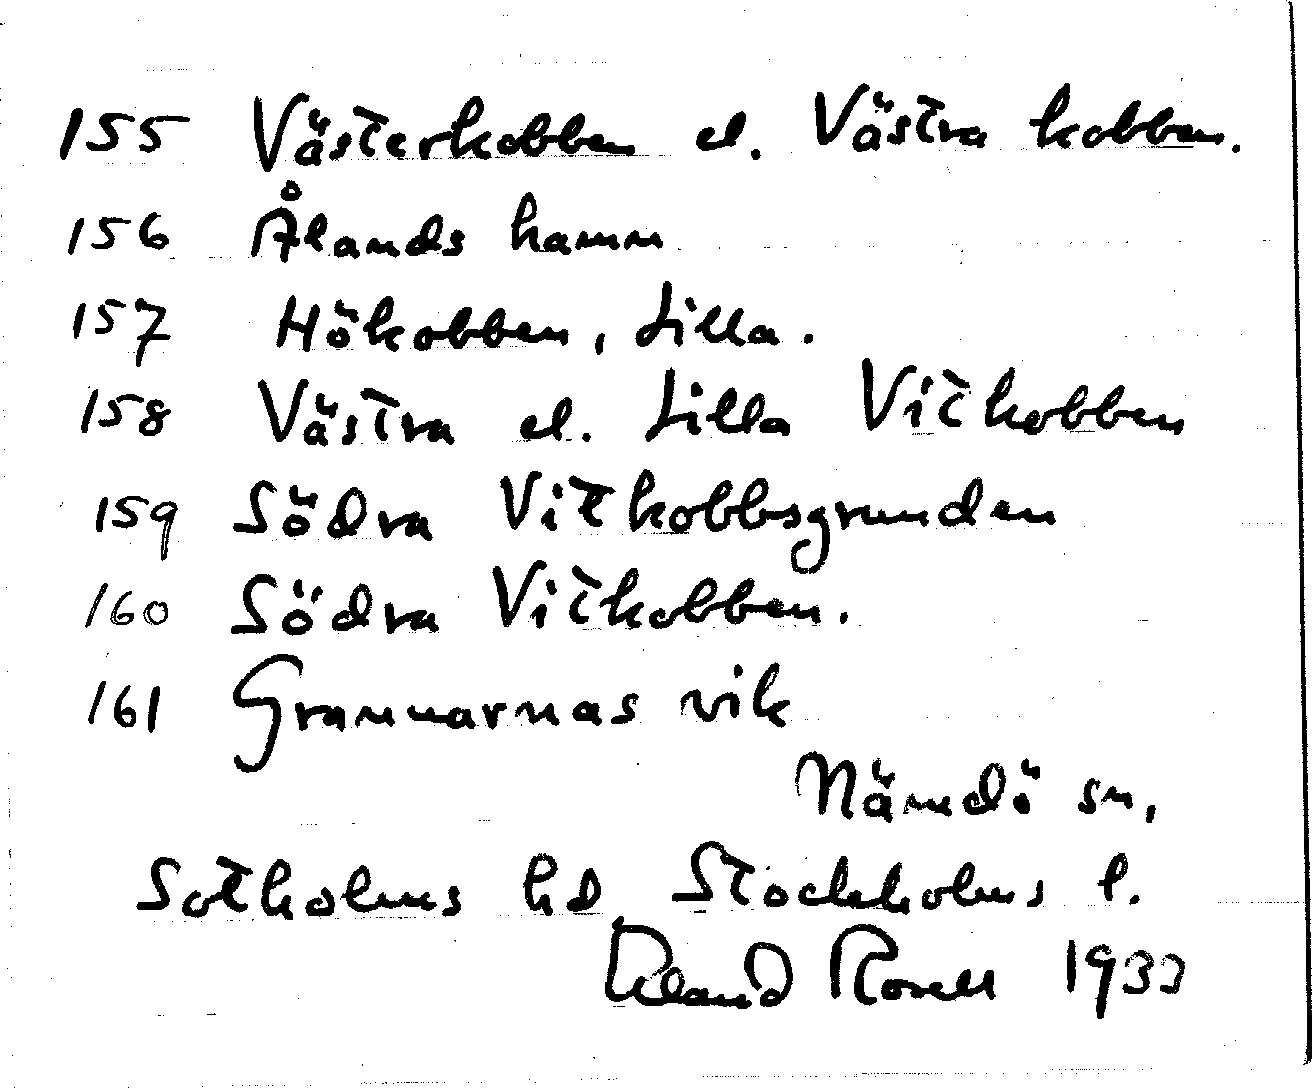 155 Västerkobben el. Västra kobben.
156 Ålands hamn
157 Hökobben, Lilla.
158 Västra el. Lilla Vitkobben
159 Södra Vitkobbsgrunden
160 Södra Vitkobben.
161 Grannarnas vik
Nämdö sn,
Sotholms hd Stockholms l.
Roland Rosell 1933